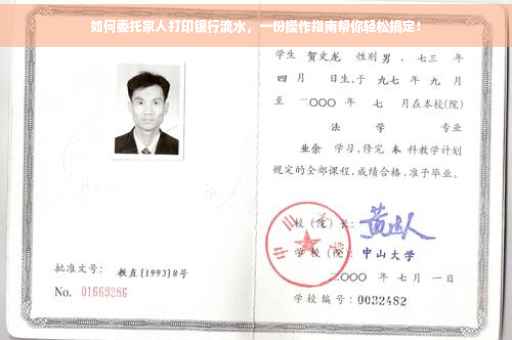 如何委托家人打印银行流水，一份操作指南帮你轻松搞定！
学生 贺文龙 性别 男，七三 年
四 月 日生，于 九七 年 九 月
至 二〇〇〇 年 七 月在本校(院)
法 学 专业
业余 学习，修完 本 科教学计划
规定的全部课程，成绩合格，准予毕业。
校（院）长：
学 校（院）：中山大学
二〇〇〇 年 七 月 一 日
学校编号：0032482
批准文号：教直[1993]8号
No. 01669286